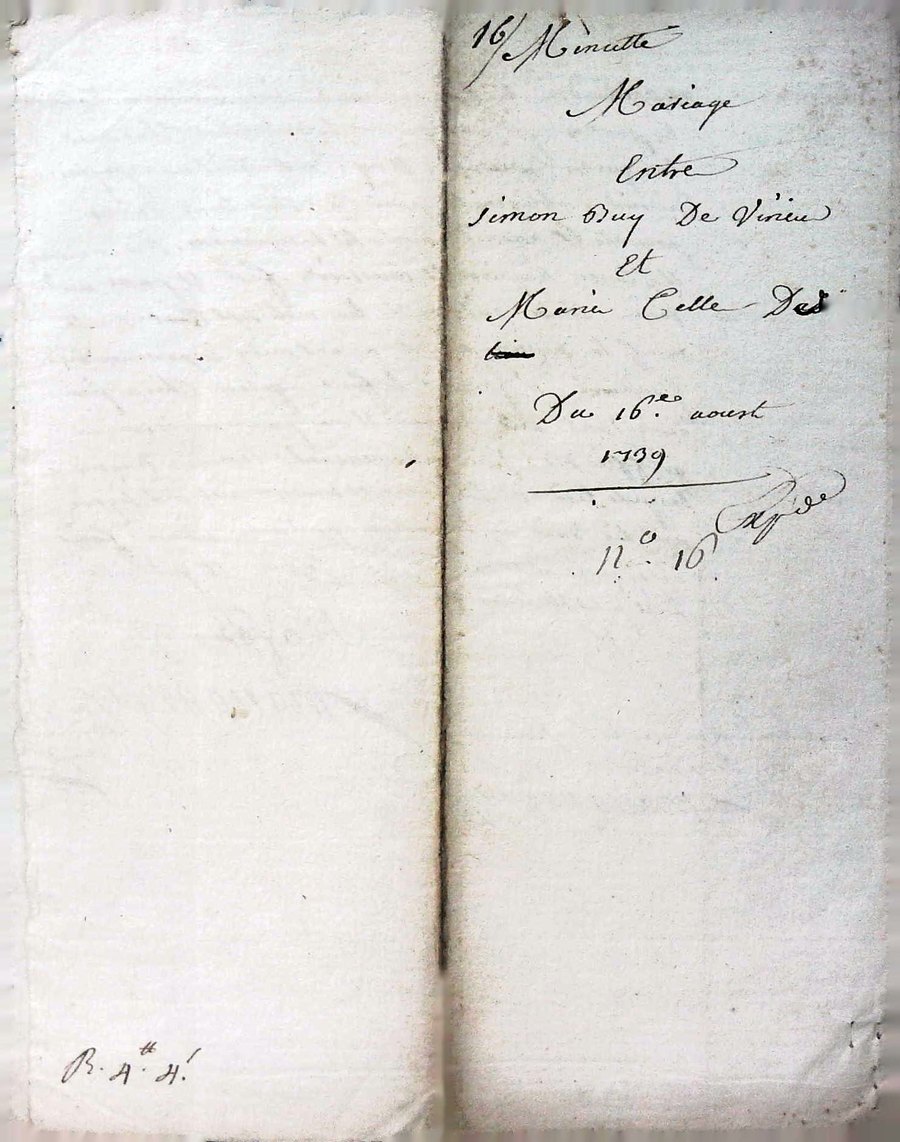 16/ Minutte
Mariage
Entre
Simon Buy De Virieu
Et
Marie Celle Des
Du 16.e aoust
1739
Expdé
N.o 16
R. 4.tt 4.s